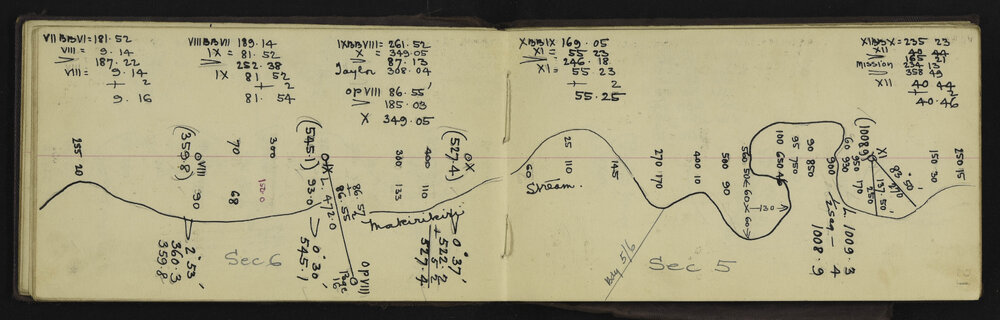 VII BB VI = 181.52
VIII = 9.14
187.22
VIII = 9.14
+ 2
9.16
VIII BB VII 189.14
IX = 81.52
252.38
IX 81 52
+ 2
81.54
IX BB VIII = 261.52
X = 349.05
87.13
Taylor 308.04
OP VIII 86.55'
185.03
X 349.05
X BB IX 169.05
XI = 55 23
246.18
XI = 55.23
+ 2
55.25
XI BB X = 235 23
XII 40 44
Mission 234 13
358 49
XII 40 44
+ 2
40.46
255 20
(359.8) OVIII
90
70
68
300
1520
(545.1) OIX
90
L. 472.0
86.57
86.55
300
133
400
110
(527.4) OX
Makirikiri
60
Stream
25
110
145
270 170
400 10
500 90
560 50 <60 X 60>
130
100 650 45
95 750
90 850
900
60 930
950 170
(1008.9) XI
137.50'
250
83 50'
270
150 30
250 15
2°53'
360.3
359.8
Sec 6
0°30'
545.1
OP VIII
Page 16
0°37'
522.2
+ 5.2
527.4
Bdy 5/6
Sec 5
L. 1009.3
½ sag - 4
1008.9